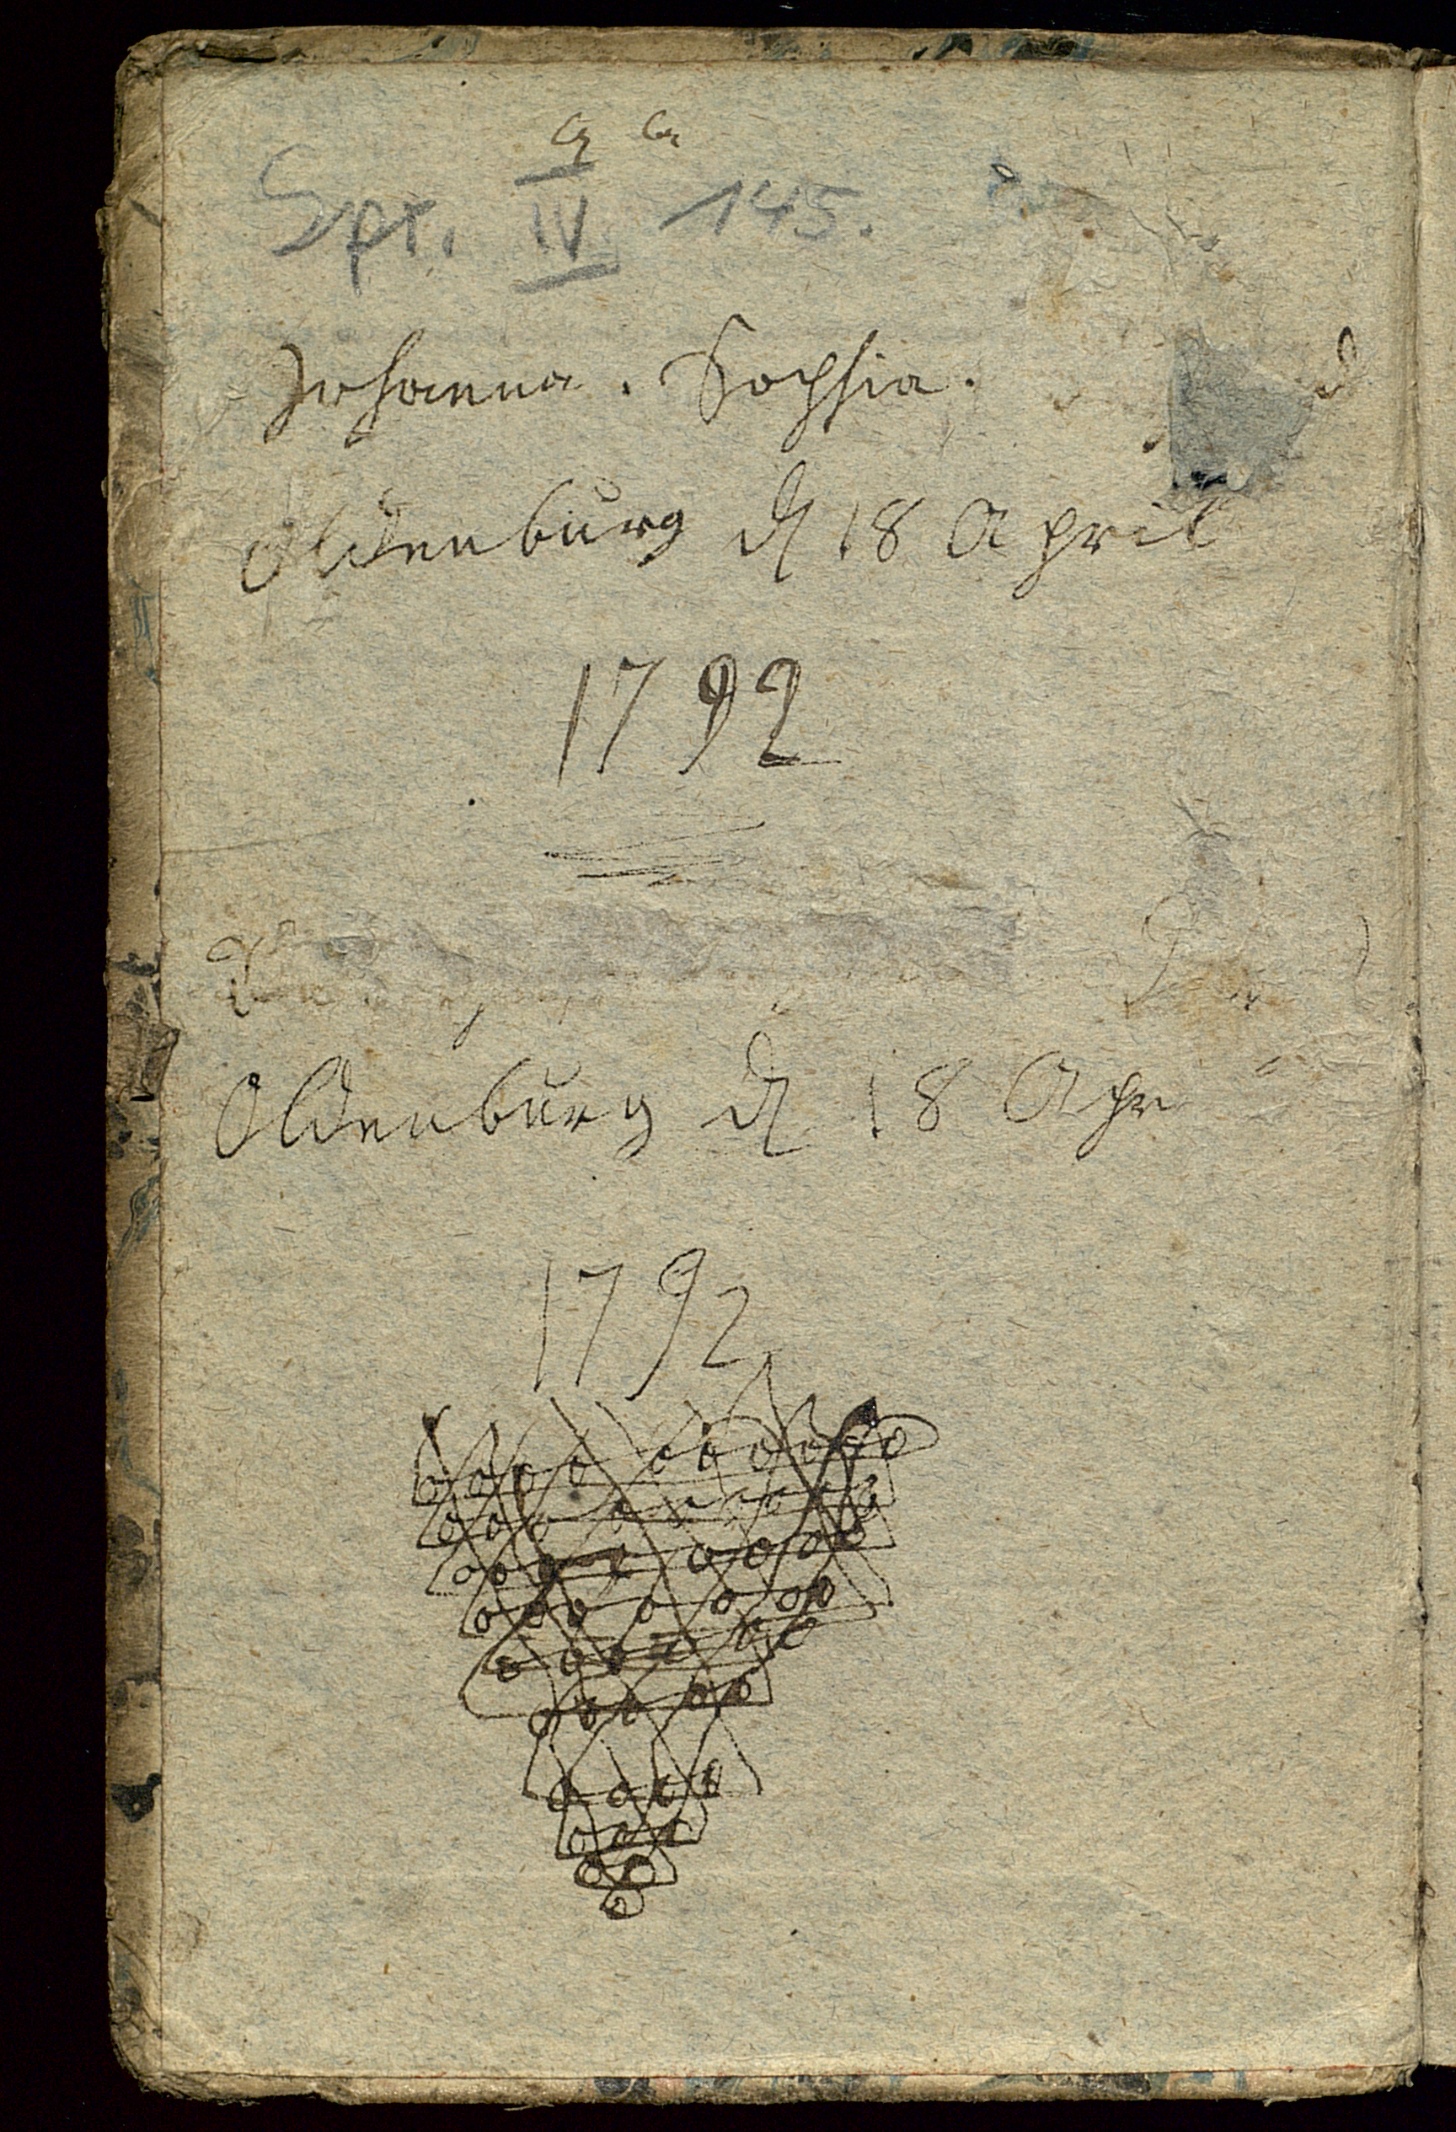 Spr. IV 145.
Johanna. Sophia.
Oldenburg d 18 April
1792
Oldenburg d 18 Apr
1792